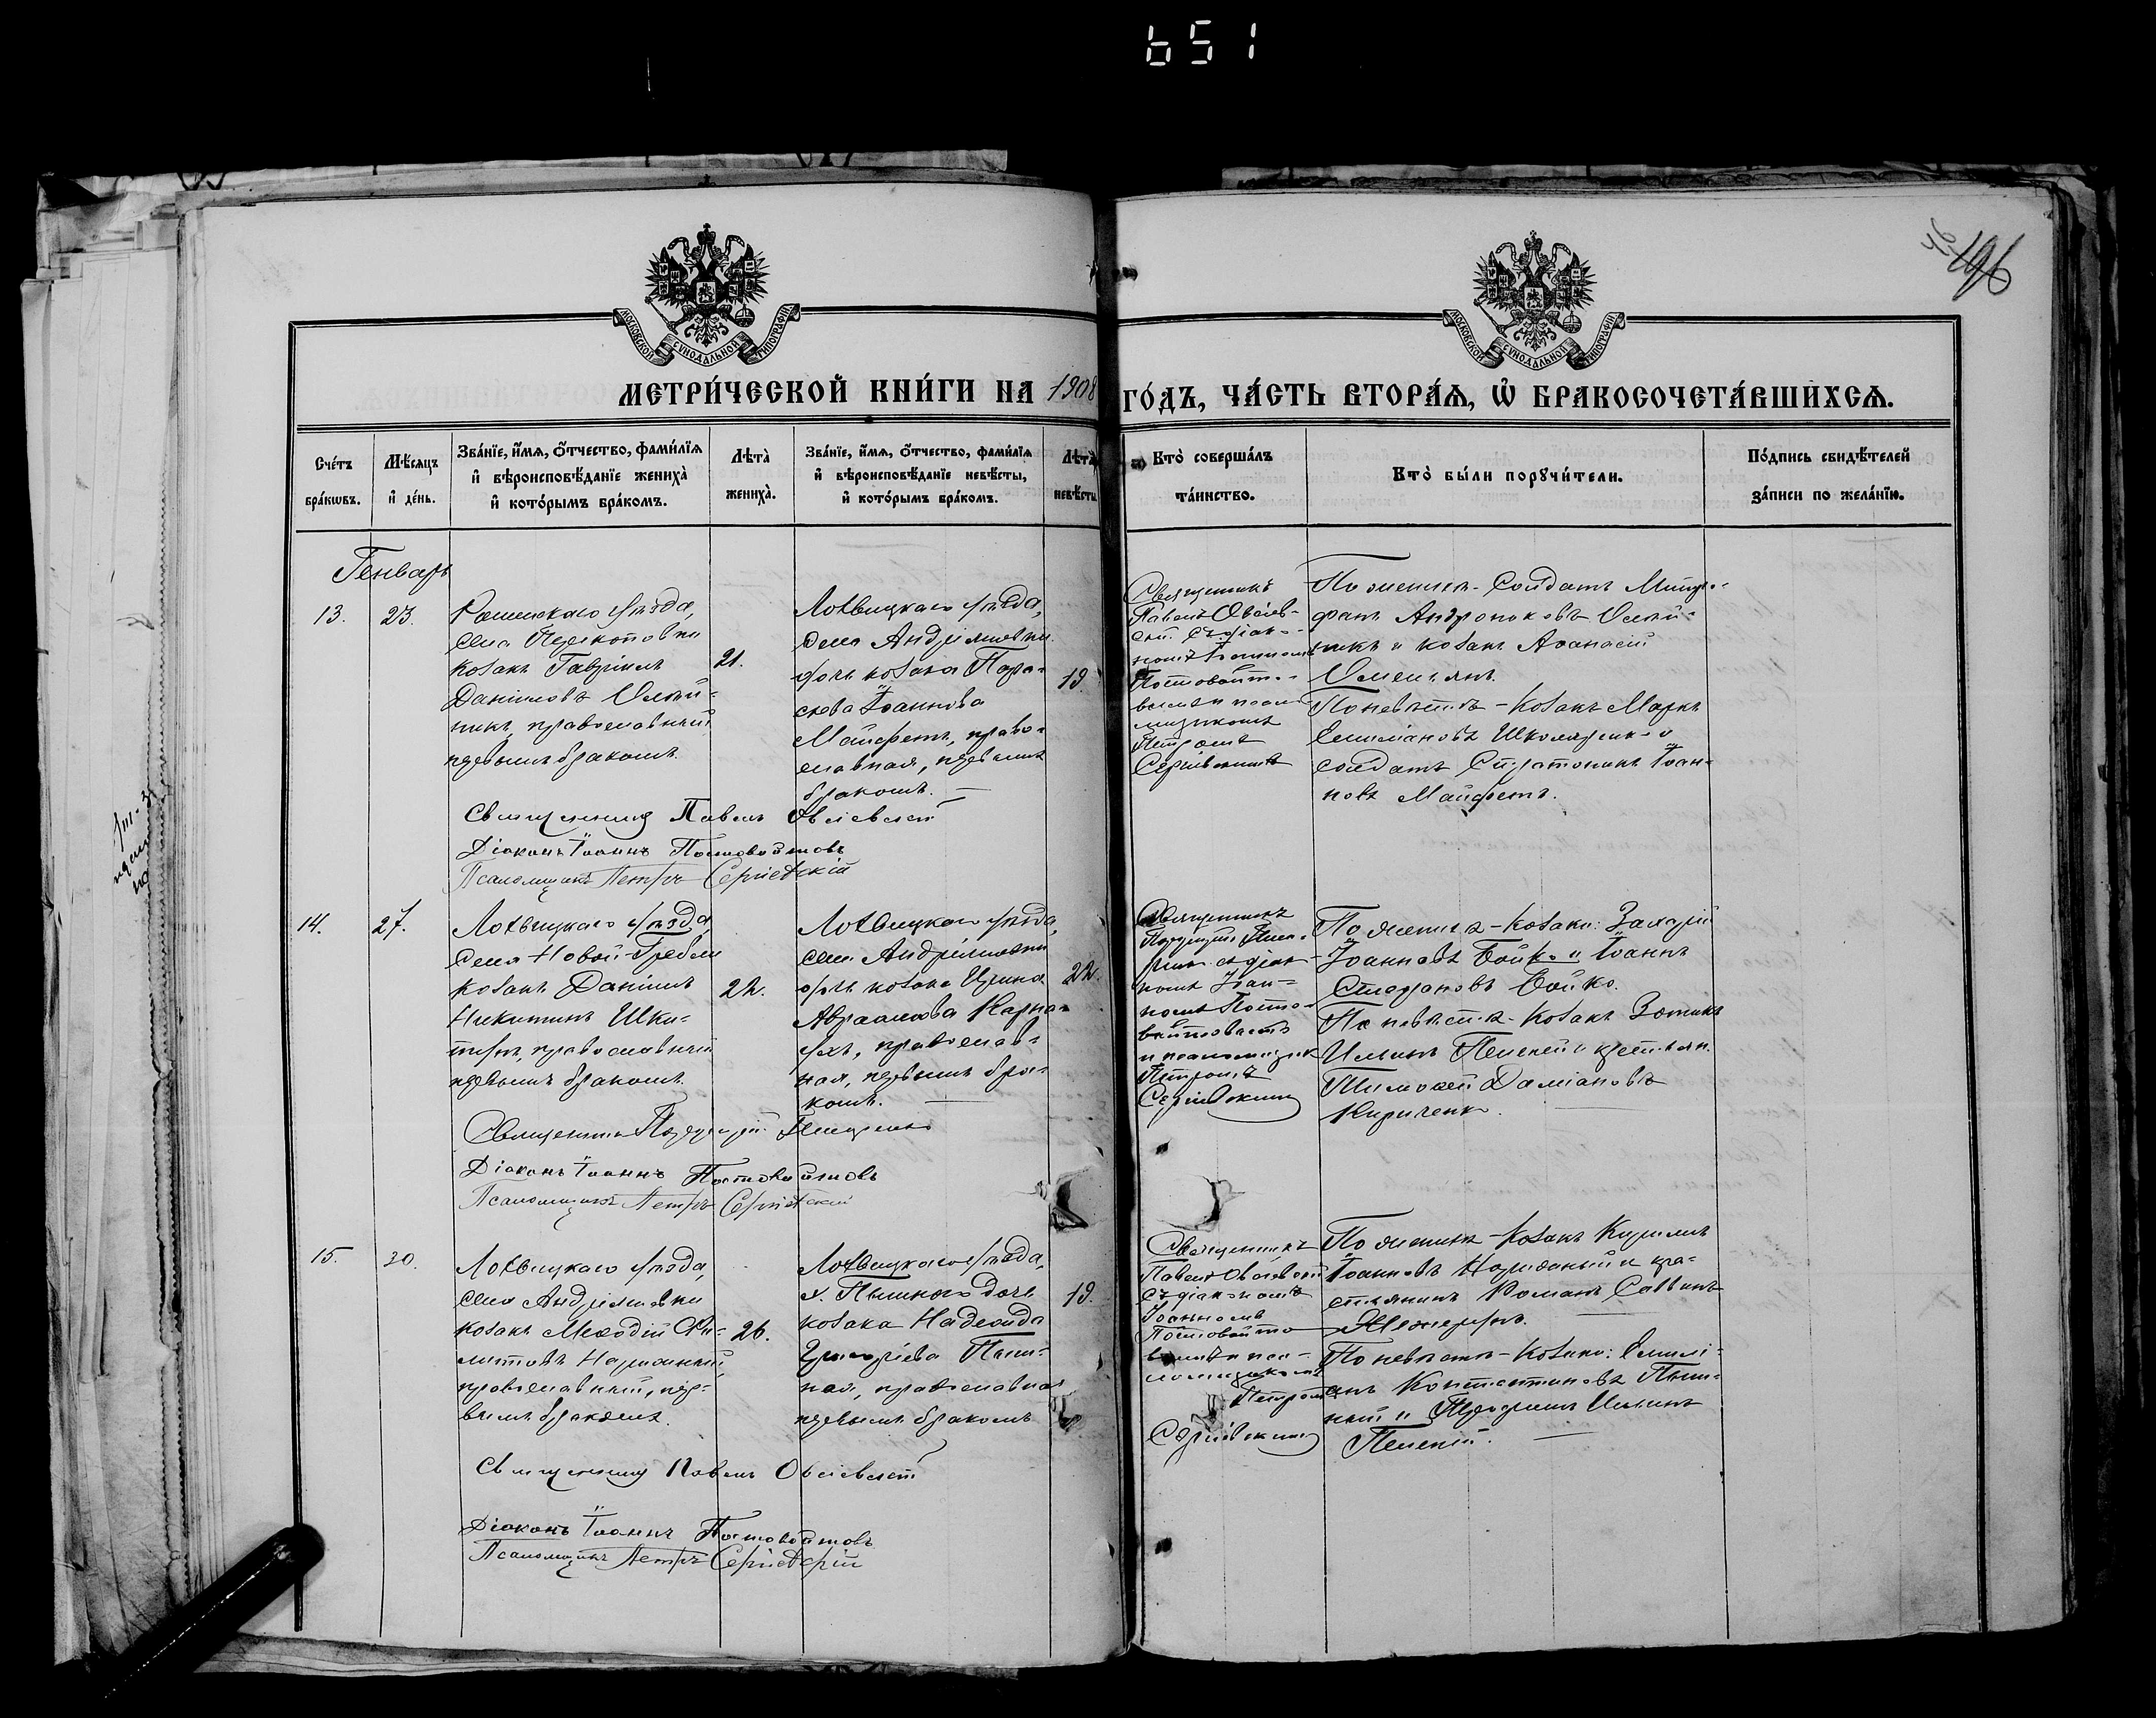 651
196
МОСКОВСКОЙ СУНОДАЛЬНОЙ ТИПОГРАФІИ
МОСКОВСКОЙ СУНОДАЛЬНОЙ ТИПОГРАФІИ
МЕТРИ́ЧЕСКОЙ КНИ́ГИ НА 1908 ГО́ДЪ, ЧА́СТЬ ВТОРА́Ѧ, Ѽ БРАКОСОЧЕТА́ВШИХСѦ.
Сче́тъ бра́кѡвъ.
Мѣ́сѧцъ и҆ де́нь.
Зва́нїе, и҆́мѧ, ѻ҆́тчество, фами́лїѧ
и҆ вѣроисповѣ́данїе жениха̀
и҆ кото́рымъ бра́комъ.
Лѣта̀ жениха̀.
Зва́нїе, и҆́мѧ, ѻ҆́тчество, фами́лїѧ
и҆ вѣроисповѣ́данїе невѣ́сты,
и҆ кото́рымъ бра́комъ.
Лѣта̀ невѣ́сты.
Кто̀ соверша́лъ
та́инство.
Кто̀ бы́ли порꙋчи́тели.
По́дпись свидѣ́телей
за́писи по жела́нїю.
Генварь
13.
23.
Роменскаго уѣзда,
села Перекоповки
козакъ Гавріилъ
Даніиловъ Олѣй-
никъ, православный
первымъ бракомъ.
21.
Лохвицкаго уѣзда,
села Андріяшевки
дочь козака Пара-
скева Іоаннова
Майфетъ, право-
славная, первымъ
бракомъ.
19.
Священникъ
Павелъ Овсіев-
скій съ діако-
номъ Іоанномъ
Постовойто-
вымъ и псало-
мщикомъ
Петромъ
Сергіевскимъ
По женихѣ - Солдатъ Митро-
фанъ Андрониковъ Олѣй-
никъ и козакъ Аѳанасій
Омельянъ.
По невѣстѣ - Козакъ Маркъ
Емиліановъ Школяренко и
солдатъ Стратоникъ Іоан-
новъ Майфетъ.
Священникъ Павелъ Овсіевскій
Діаконъ Іоаннъ Постовойтовъ
Псаломщикъ Петръ Сергіевскій
14.
27.
Лохвицкаго уѣзда,
села Новой-Гребли
козакъ Даніилъ
Никитинъ Шки-
тырь, православный
первымъ бракомъ.
22.
Лохвицкаго уѣзда,
села Андріяшевки
дочь козака Ирина
Авраамова Карна-
ухъ, православ-
ная, первымъ бра-
комъ.
22.
Священникъ
съ діако-
номъ Іоан-
номъ Посто-
войтовымъ
и псаломщик.
Петромъ
Сергіевскимъ
По женихѣ - Козаки: Захарій
Іоанновъ Бойко и Іоаннъ
Стефановъ Бойко.
По невѣстѣ - Козакъ Зотикъ
Ильинъ Пелепей и крестьян.
Тимоѳей Даміановъ
Кириченко.
Священникъ
Діаконъ Іоаннъ Постовойтовъ
Псаломщикъ Петръ Сергіевскій
15.
30.
Лохвицкаго уѣзда,
села Андріяшевки
козакъ Меѳодій Фи-
литовъ Нарожный,
православный, пер-
вымъ бракомъ.
26.
Лохвицкаго уѣзда,
дочь
козака Надежда
Григоріева Пыш-
ная, православная
первымъ бракомъ
19.
Священникъ
Павелъ Овсіевскій
съ діакономъ
Іоанномъ
Постовойто-
вымъ и пса-
ломщикомъ
Петромъ
Сергіевскимъ
По женихѣ - Козакъ Кириллъ
Іоанновъ Нарожный и кре-
стьянинъ Романъ Саввинъ
По невѣстѣ - Козаки: Емилі-
анъ Константиновъ Пыш-
ный и Ильинъ
Пелепей.
Священникъ Павелъ Овсіевскій
Діаконъ Іоаннъ Постовойтовъ
Псаломщикъ Петръ Сергіевскій